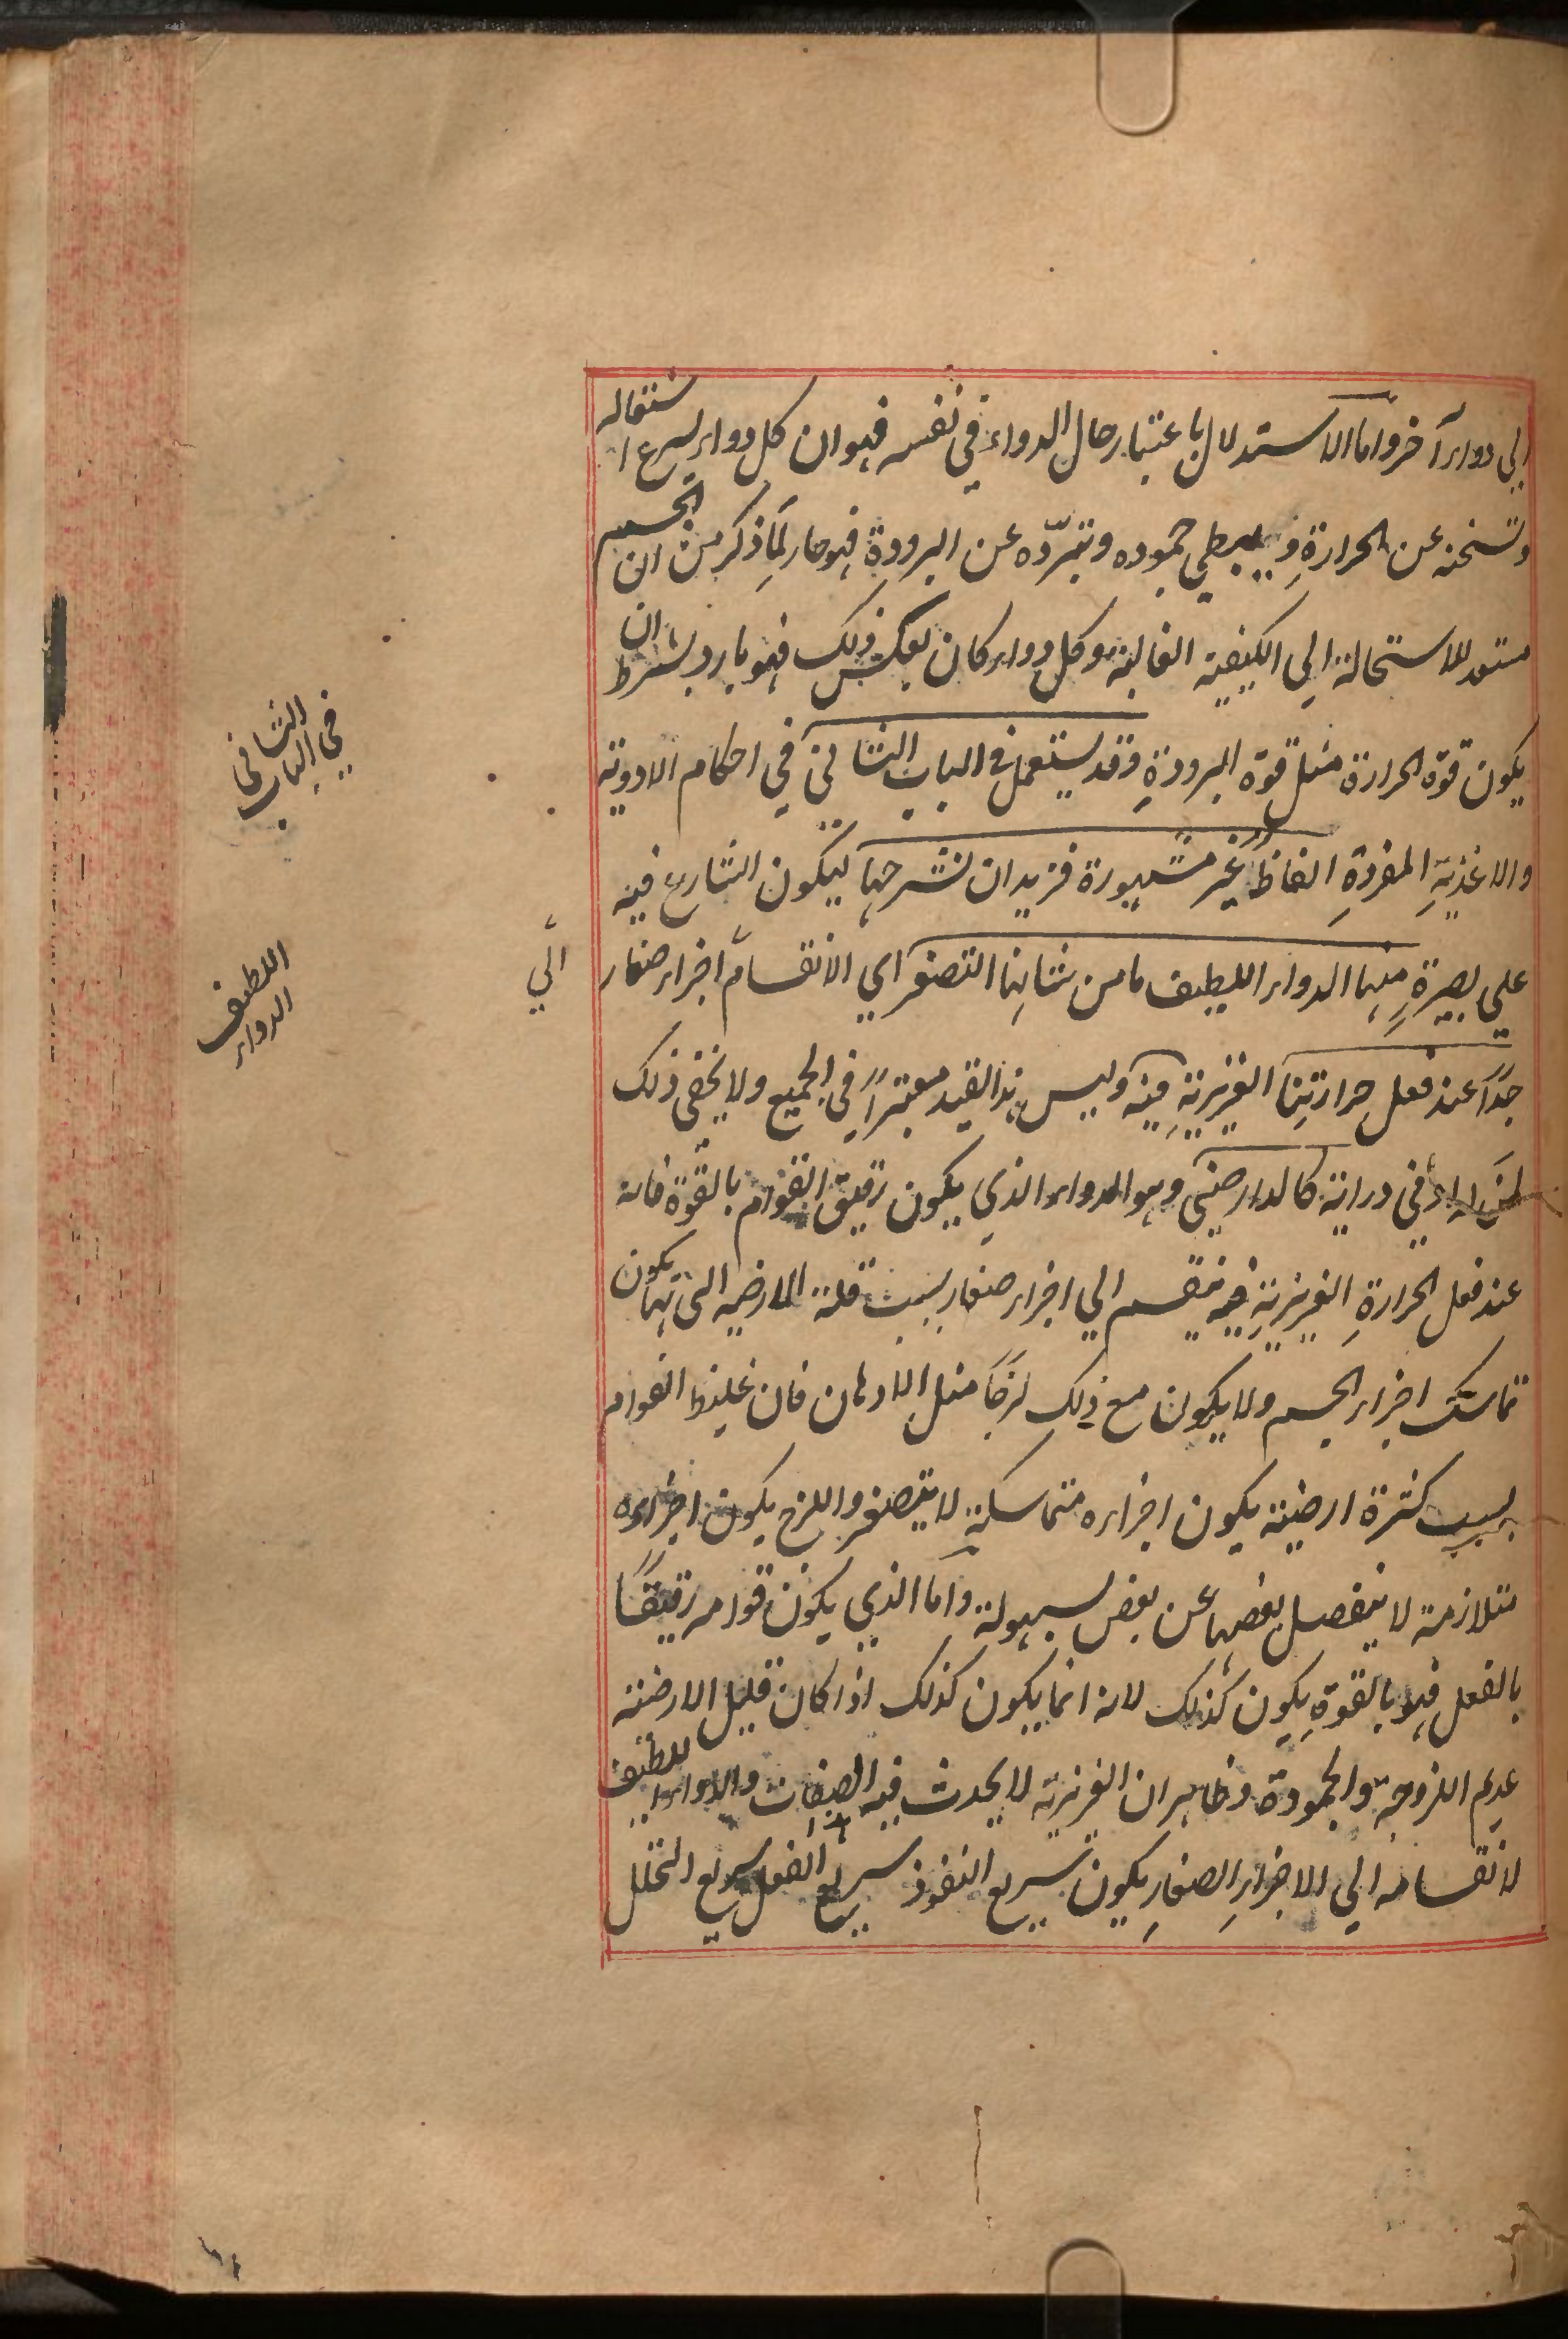 الي دواء آخر واما الاستدلال باعتبار حال الدواء في نفسه فهو ان كل دواء يسرع اشتعاله
وتسخنه عن الحرارةِ و يبطي جموده وتبرّده عن البرودةِ فهو حار لِمَا ذكر من ان الجسم
مستعد للاستحالة الي الكيفية الغالبة وكل دواء كان بعكس ذلك فهو بارد بشرط ان
يكون قوة الحرارة مثل قوة البرودةِ وقد يستعمل في الباب الثاني في احكام الادوية
والاغذيةِ المفردةِ الفاظٌ غير مشهورة فنريد ان نشرحها ليكون الشارع فيه
علي بصيرةٍ منها الدواء اللطيف ما من شانها التصغر اي الانقسام اجزاء صغار
الي
جدّاً عند فعل حرارتنا الغريزيةِ فيه وليس هذا القيد معتبراً في الجميع ولا يخفى ذلك
في دراية كالدارصيني وهو الدواء الذي يكون رقيق القوام بالقوة فانه
عند فعل الحرارةِ الغريزيةِ فيه ينقسم الي اجزاء صغار بسبب قلة الارضيه التي بها يكون
تماسك اجزاء الجسم ولا يكون مع ذلك لزجًا مثل الادهان فان غليظ القوام
بسبب كثرة ارضية يكون اجزاءه متماسكة لا يتصغر واللزج يكون اجزاءه
متلازمة لا ينفصل بعضها عن بعض بسهولة واما الذي يكون قوامه رقيقًا
بالفعل فهو بالقوةِ يكون كذلك لانه انما يكون كذلك اذا كان قليل الارضية
عديم اللزوجة والجمودة وظاهر ان الغريزية لا يحدث فيه الصفات والدواء اللطيف
لانقسامه الي الاجزاءِ الصغارِ يكون سريع النفوذ سريع الفعل سريع التحلل
الثاني
في الباب
اللطيف
الدواء